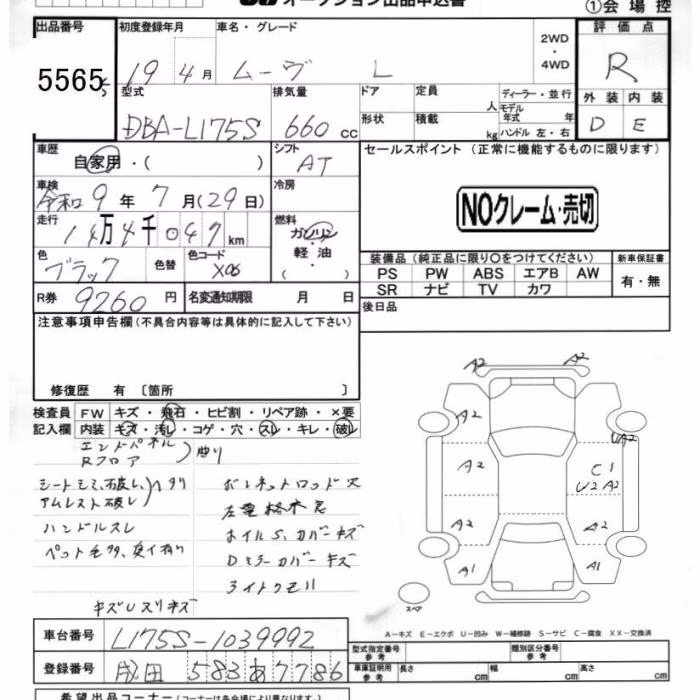 オークション出品申込書
①会場控
出品番号
5565
初度登録年月
19 4月
車名・グレード
ムーヴ L
2WD
・
4WD
評価点
R
外装 内装
D E
型式
DBA-L175S
排気量
660 cc
ドア
形状
定員
人
積載
kg
ディーラー・並行
モデル
年式 年
ハンドル 左・右
車歴
自家用・( )
シフト
AT
セールスポイント (正常に機能するものに限ります)
NOクレーム・売切
車検
令和 9年 7月(29日)
冷房
走行
14万4千047km
燃料
ガソリン
軽油
( )
色
ブラック
色替
色コード
X06
装備品(純正品に限り○をつけてください)
新車保証書
PS PW ABS エアB AW
SR ナビ TV カワ
有・無
R券 9260円
名変通知期限 月 日
後日品
注意事項申告欄(不具合内容等は具体的に記入して下さい)
修復歴 有 〔箇所 〕
検査員
記入欄
FW キズ・飛石・ヒビ割・リペア跡・×要
内装 キズ・汚レ・コゲ・穴・スレ・キレ・破レ
エンドパネル
Rフロア
曲り
シートシミ、破レ、ヘタリ
アムレスト破レ
ハンドルスレ
ペット毛多、臭イ有り
ボンネットロッド欠
ホイルS、カバーキズ
Dミラーカバーキズ
キズUスリキズ
A2 A2
A2 UA2
A2 C1
U2 A2
A2 A2
A1 A1
スペア
A-キズ E-エクボ U-凹み W-補修跡 S-サビ C-腐食 XX-交換済
車台番号 L175S-1039992
登録番号 成田 583 あ 7786
型式指定番号
参考
類別区分番号
参考
車庫証明用
参考
長さ cm 幅 cm 高さ cm
希望出品コーナー(コーナーは各会場により異なります)